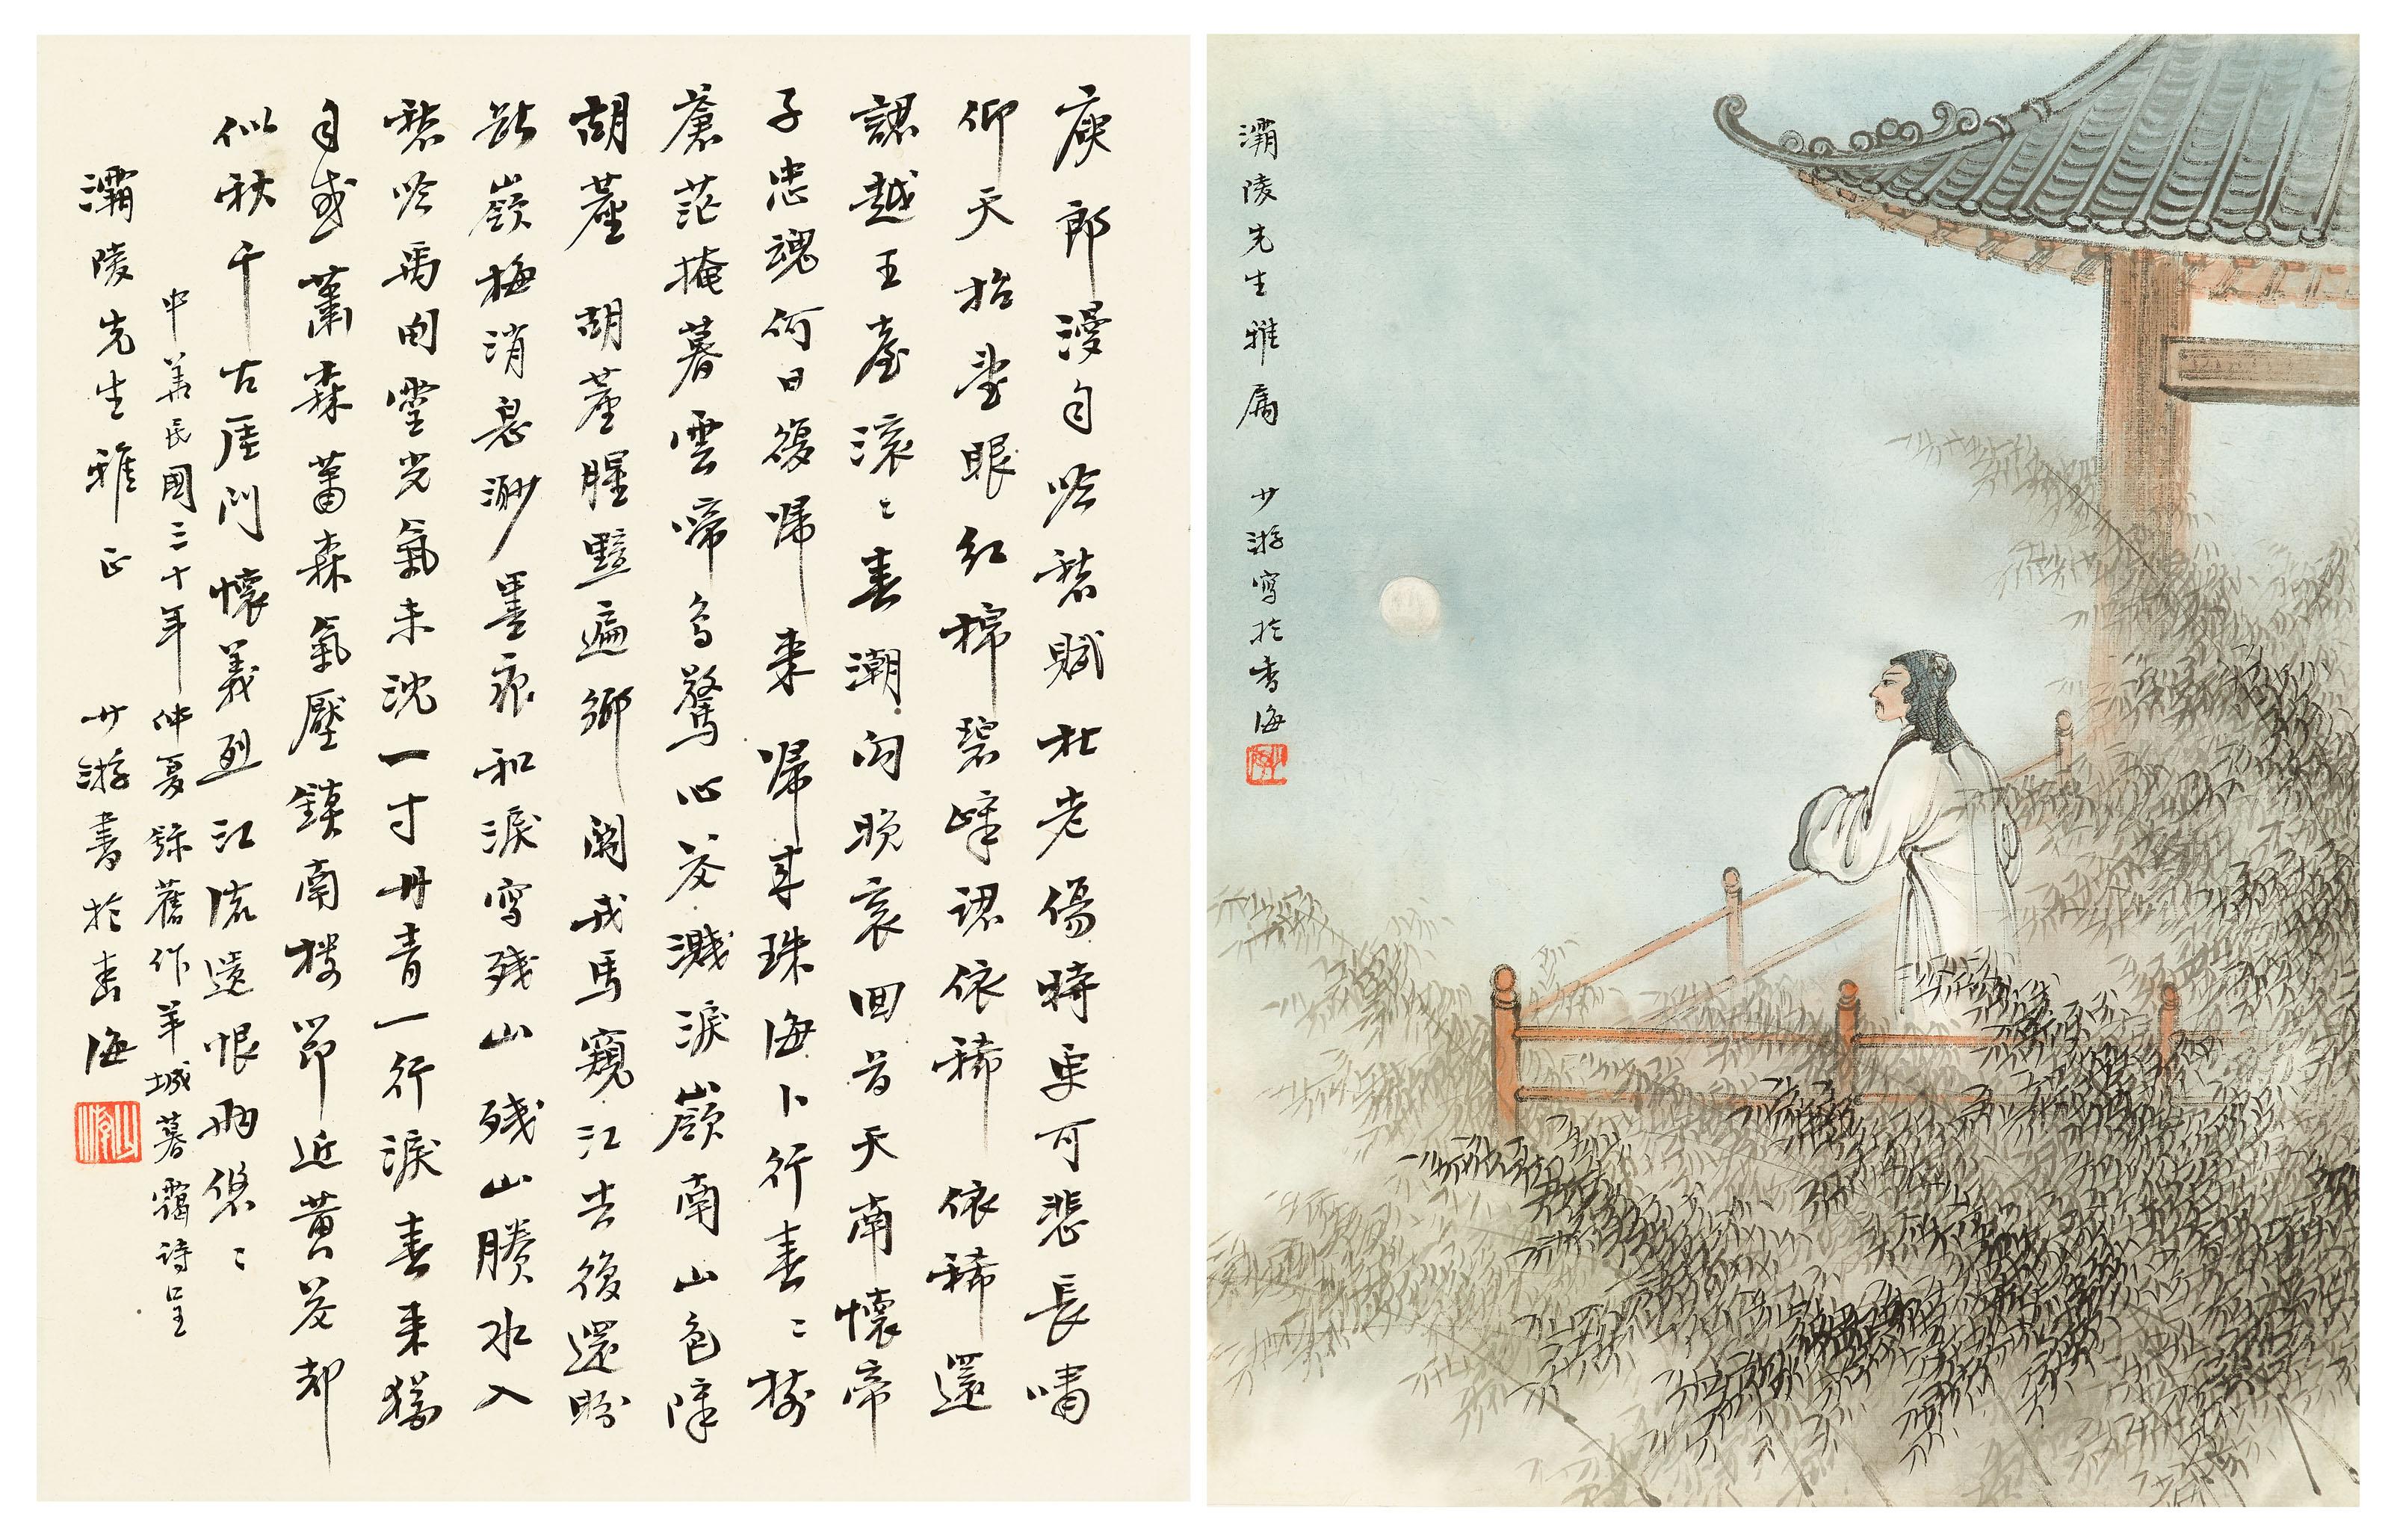 庾郎漫自吟愁賦杜老傷時更可悲長嘯
仰天抬望眼紅棉碧嶂認依稀 依稀還
認越王臺滾〻春潮向晚哀回首天南懷帝
子忠魂何日復歸來 歸來珠海卜行春〻樹
蒼茫掩暮雲啼鳥驚心花濺淚嶺南山色障
胡塵 胡塵腥黯遍鄉關戎馬窺江去後還盼
斷嶺梅消息渺墨痕和淚寫殘山 殘山賸水入
愁吟禹甸靈光氣未沈一寸丹青一行淚春來猶
自感蕭森 蕭森氣壓鎮南樓節近黃花却
似秋千古厓門懷義烈江流遺恨兩悠〻
中華民國三十年仲夏錄舊作羊城暮靄詩呈
灞陵先生雅正 少游書於香海
灞陵先生雅屬 少游寫於香海